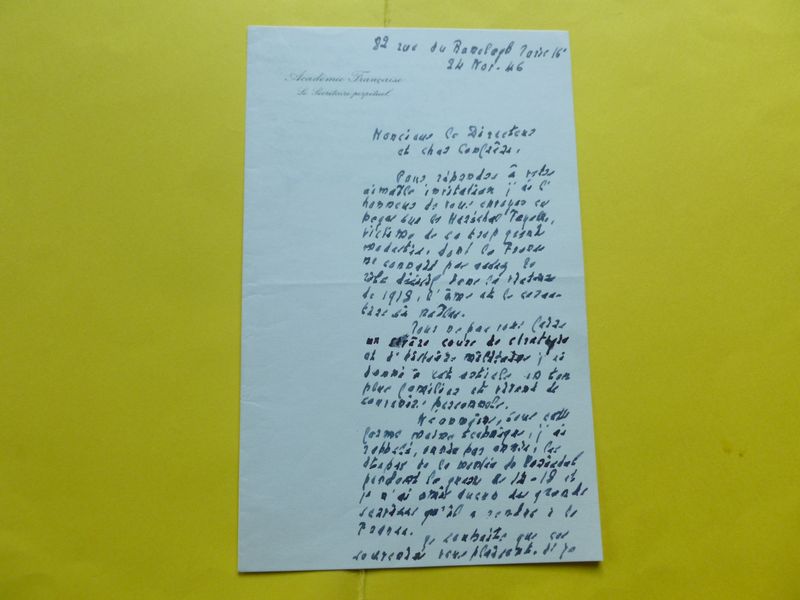 82 rue du Ranelagh Paris 16e
24 Nov. 46
Académie Française
Le Secrétaire perpétuel
Monsieur le Directeur
et cher Confrère,
Pour répondre à votre
aimable invitation j'ai l'
honneur de vous envoyer ces
pages sur le Maréchal Fayolle,
victime de sa trop grande
modestie, dont la France
ne connaît pas assez le
rôle décisif dans la victoire
de 1918, l'âme et le carac-
tère si nobles.
Pour ne pas vous faire
un sévère cours de stratégie
et d'histoire militaire j'ai
donné à cet article un ton
plus familier et vivant de
souvenirs personnels.
Néanmoins, sous cette
forme moins technique, j'ai
rappelé, année par année, les
étapes de la montée du Maréchal
pendant la guerre de 14-18 et
je n'ai omis aucun des grands
services qu'il a rendus à la
France.
Je souhaite que ces
souvenirs vous plaisent. Si je